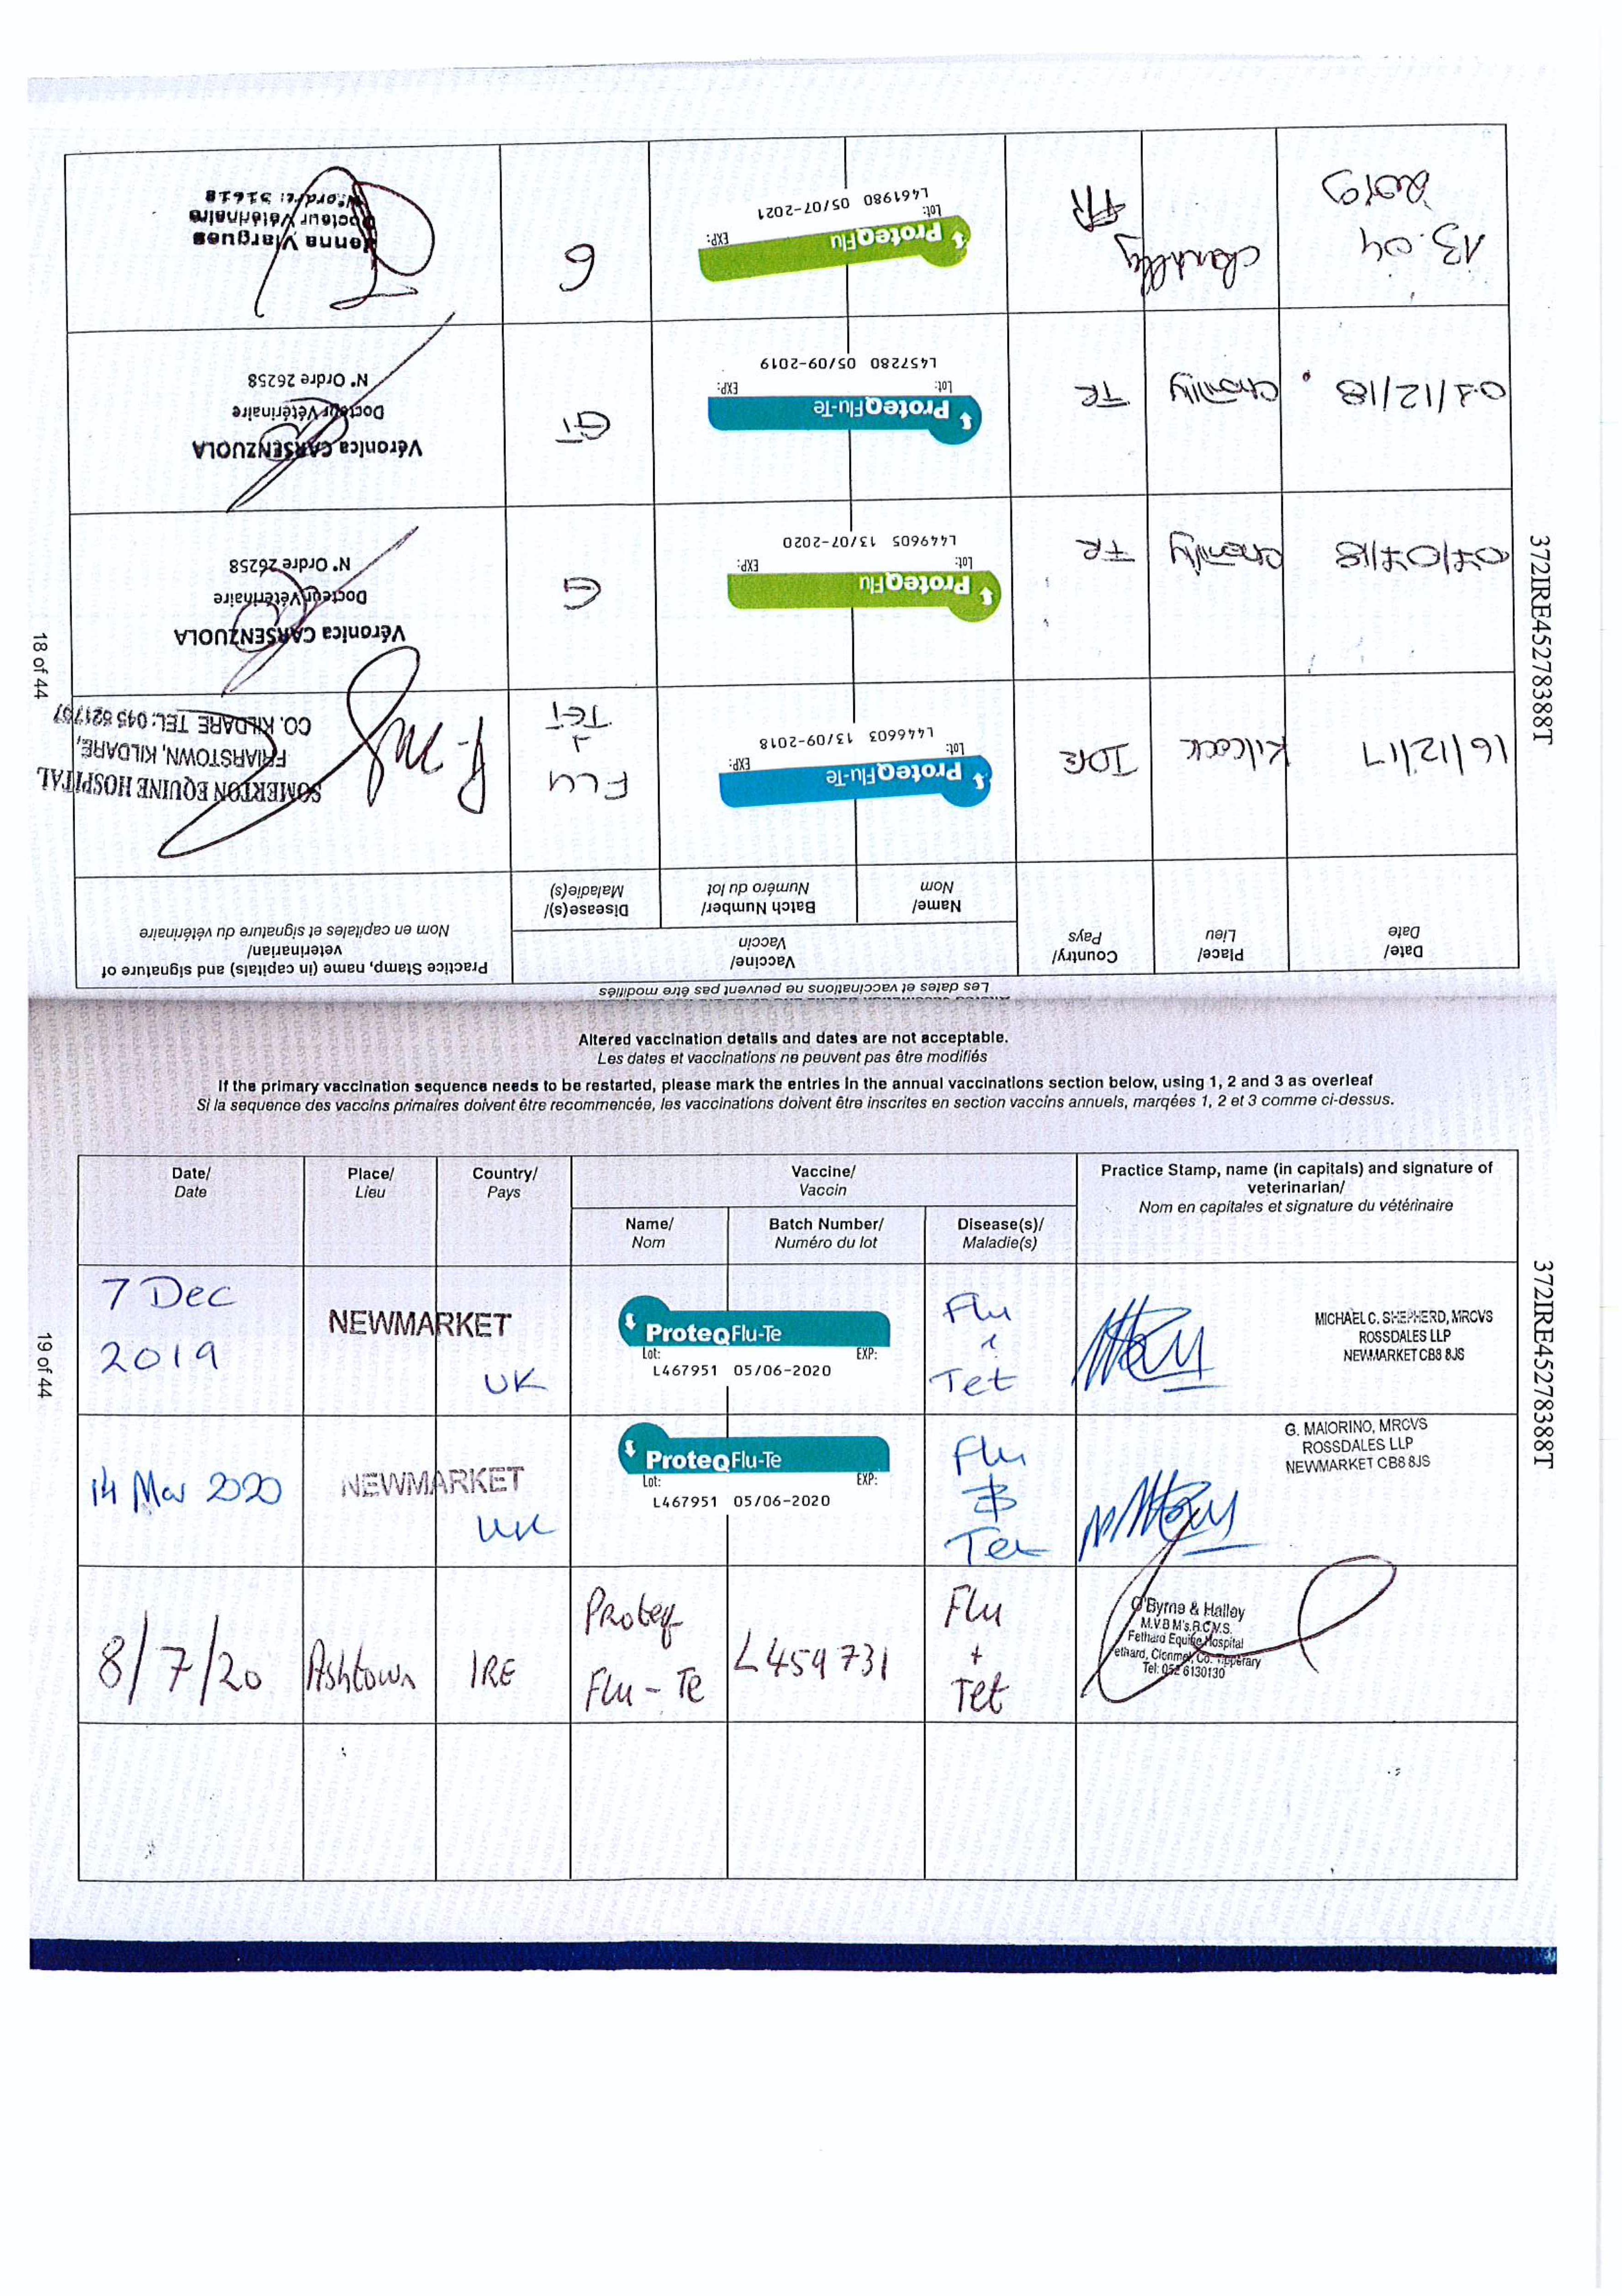 Les dates et vaccinations ne peuvent pas être modifiés
Date/
Date
Place/
Lieu
Country/
Pays
Vaccine/
Vaccin
Name/
Nom
Batch Number/
Numéro du lot
Disease(s)/
Maladie(s)
Practice Stamp, name (in capitals) and signature of
veterinarian/
Nom en capitales et signature du vétérinaire
16/12/17
Kilcock
IRE
ProteqFlu-Te
Lot: EXP:
L446603 13/09-2018
FLU
+
TET
SOMERTON EQUINE HOSPITAL
FRIARSTOWN, KILDARE,
CO. KILDARE TEL: 045 521767
07/07/18
Chantilly
FR
ProteqFlu
Lot: EXP:
L449605 13/07-2020
G
Véronica CARSENZUOLA
Docteur Vétérinaire
N° Ordre 26258
01/12/18
Chantilly
FR
ProteqFlu-Te
Lot: EXP:
L457280 05/09-2019
GT
Véronica CARSENZUOLA
Docteur Vétérinaire
N° Ordre 26258
13.04
2019
Chantilly
FR
ProteqFlu
Lot: EXP:
L461980 05/07-2021
G
Vlargues
Docteur Vétérinaire
N°ordre: 31618
372IRE45278388T
18 of 44
Altered vaccination details and dates are not acceptable.
Les dates et vaccinations ne peuvent pas être modifiés
If the primary vaccination sequence needs to be restarted, please mark the entries in the annual vaccinations section below, using 1, 2 and 3 as overleaf
Si la sequence des vaccins primaires doivent être recommencée, les vaccinations doivent être inscrites en section vaccins annuels, marqées 1, 2 et 3 comme ci-dessus.
Date/
Date
Place/
Lieu
Country/
Pays
Vaccine/
Vaccin
Name/
Nom
Batch Number/
Numéro du lot
Disease(s)/
Maladie(s)
Practice Stamp, name (in capitals) and signature of
veterinarian/
Nom en capitales et signature du vétérinaire
7 Dec
2019
NEWMARKET
UK
ProteqFlu-Te
Lot: EXP:
L467951 05/06-2020
Flu
Tet
MICHAEL C. SHEPHERD, MRCVS
ROSSDALES LLP
NEWMARKET CB8 8JS
14 Mar 2020
NEWMARKET
UK
ProteqFlu-Te
Lot: EXP:
L467951 05/06-2020
Flu
Tet
G. MAIORINO, MRCVS
ROSSDALES LLP
NEWMARKET CB8 8JS
8/7/20
Ashtown
IRE
Proteq
Flu-Te
L459731
Flu
+
Tet
O'Byrne & Halley
M.V.B M's.R.C.V.S.
Fethard Equine Hospital
ethard, Clonmel, Co. Tipperary
Tel: 052 6130130
372IRE45278388T
19 of 44